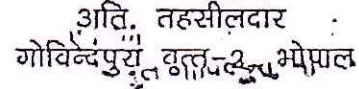 अति. तहसीलदार
गोविन्दपुरा वृत्त-2 भोपाल